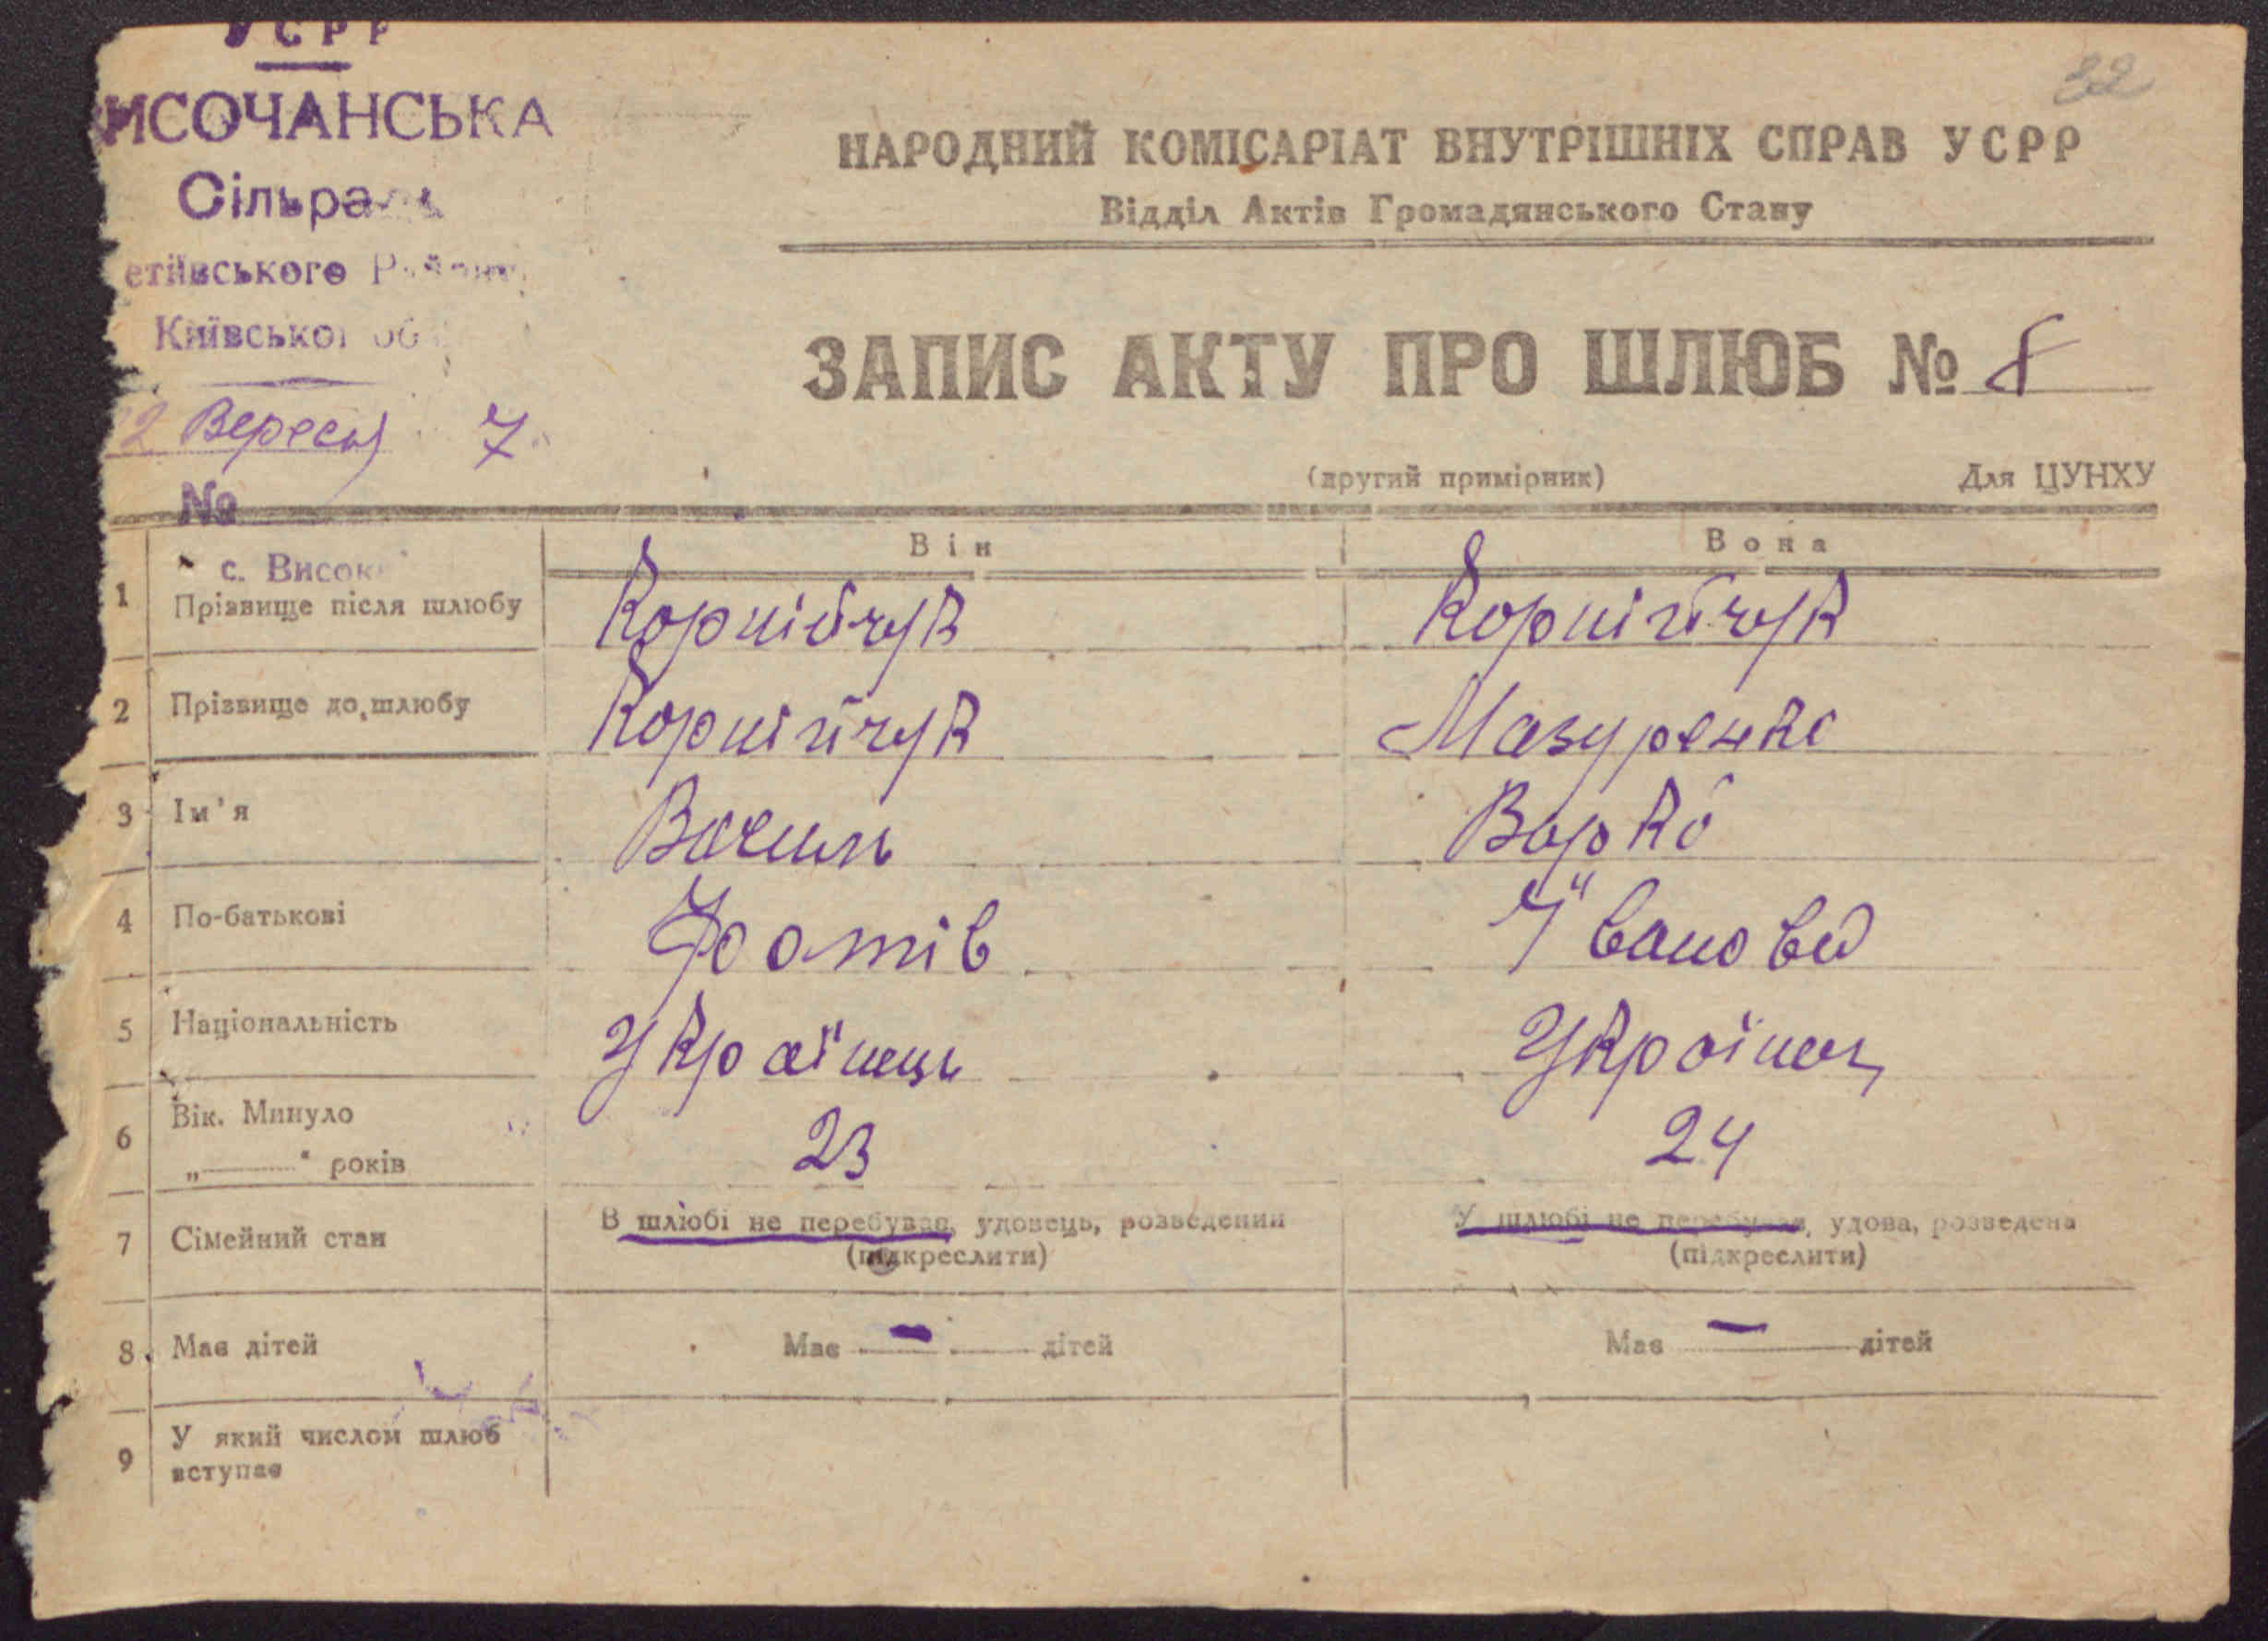 УСРР
ИСОЧАНСЬКА
Сільрада
етіївського Району
Київської об
2 Вересня 7
№
32
НАРОДНИЙ КОМІСАРІАТ ВНУТРІШНІХ СПРАВ УСРР
Відділ Актів Громадянського Стану
ЗАПИС АКТУ ПРО ШЛЮБ № 8
(другий примірник) Для ЦУНХУ
Він Вона
с. Високе
1 Прізвище після шлюбу Корнійчук Корнійчук
2 Прізвище до шлюбу Корнійчук Мазуренко
3 Ім'я Василь Варка
4 По-батькові Фотів Іванова
5 Національність Українець Українка
6 Вік. Минуло
„ “ років 23 24
7 Сімейний стан В шлюбі не перебував, удовець, розведений У шлюбі не перебувала, удова, розведена
(підкреслити) (підкреслити)
8 Має дітей Має — дітей Має — дітей
9 У який числом шлюб
вступає